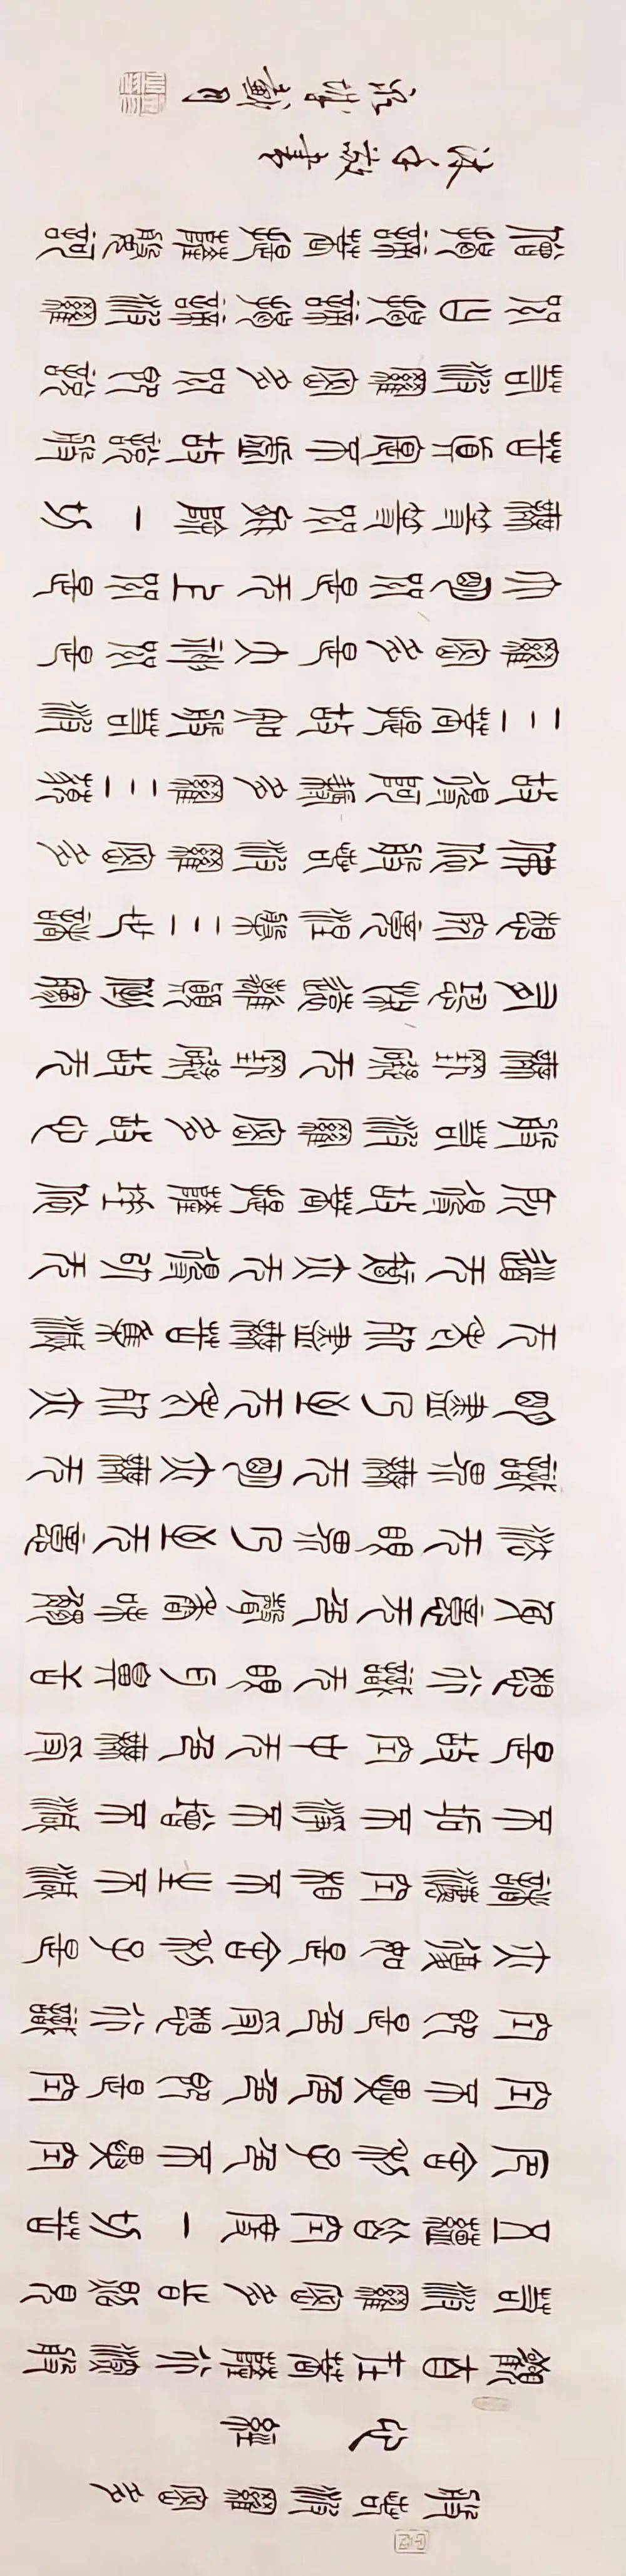 般若波羅蜜多
心經
觀自在菩薩行深般
若波羅蜜多時照見
五蘊皆空度一切苦
厄舍利子色不異空
空不異色色即是空
空即是色受想行識
亦復如是舍利子是
諸法空相不生不滅
不垢不淨不增不減
是故空中无色無受
想行識无眼耳鼻舌
身意无色聲香味觸
法无眼界乃至无意
識界無无明亦無无
明盡乃至无老死亦
无老死盡無苦集滅
道无智亦无得以无
所得故菩提薩埵依
般若波羅蜜多故心
無罣礙无罣礙故无
有恐怖遠離顛倒夢
想究竟涅槃三世諸
佛依般若波羅蜜多
故得阿耨多羅三藐
三菩提故知般若波
羅蜜多是大神咒是
大明咒是无上咒是
無等等咒能除一切
苦真實不虛故說般
若波羅蜜多咒即說
咒曰揭諦揭諦波羅
僧揭諦菩提薩婆訶
沐手敬書